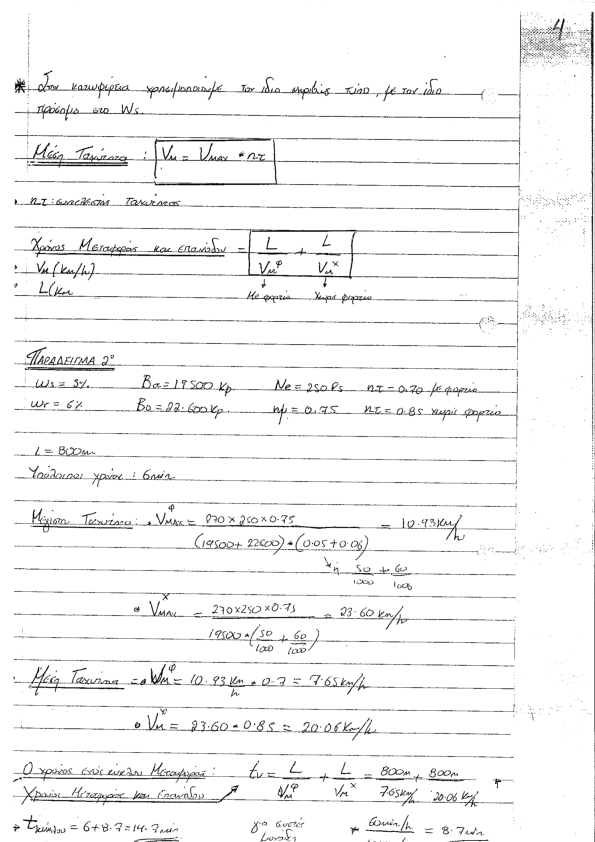 4
* Στην κατωφέρεια χρησιμοποιούμε τον ίδιο ακριβώς τύπο, με τον ίδιο
πρόσημο στο Ws.
Μέση Ταχύτητα : VM = VMAX * nτ
• nτ: συντελεστής Ταχύτητας
Χρόνος Μεταφοράς και επανόδου = L/VM^φ + L/VM^x
• VM (Km/h)
• L (Km
Με φορτίο Χωρίς φορτίο
ΠΑΡΑΔΕΙΓΜΑ 2°
Ws = 5% Bα = 19500 Kp Ne = 250 Ps nτ = 0.70 με φορτίο
Wr = 6% Bο = 22.600 Kp. nμ = 0.75 nτ = 0.85 χωρίς φορτίο
L = 800m
Υπόλοιποι χρόνοι : 6min
Μέγιστη Ταχύτητα: • VMAX^φ = 270 x 250 x 0.75 / (19500 + 22600) * (0.05 + 0.06) = 10.93 Km/h
ή 50/1000 + 60/1000
• VMAX^x = 270x250x0.75 / 19500 * (50/1000 + 60/1000) = 23.60 Km/h
• Μέση Ταχύτητα = • VM^φ = 10.93 Km/h * 0.7 = 7.65 Km/h
• VM^x = 23.60 * 0.85 = 20.06 Km/h
Ο χρόνος ενός κύκλου Μεταφοράς: tv = L/VM^φ + L/VM^x = 800m/7.65 Km/h + 800m/20.06 Km/h *
Χρόνος Μεταφοράς και Επανόδου
* tκύκλου = 6 + 8.7 = 14.7 min για σωστές * 60min/h = 8.7 min
μονάδες